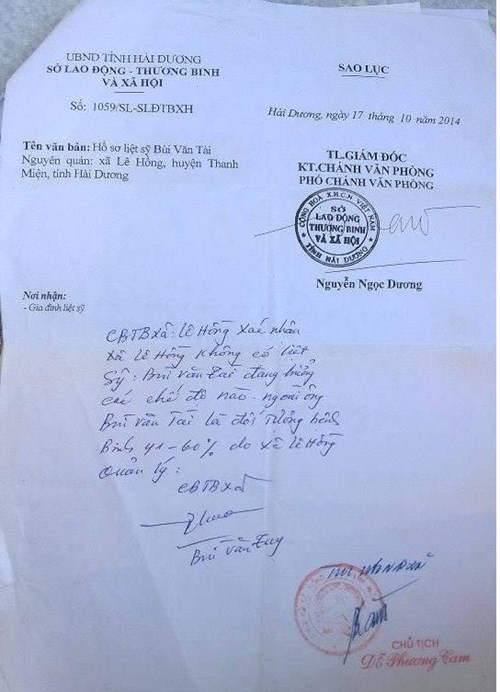 UBND TỈNH HẢI DƯƠNG
SỞ LAO ĐỘNG - THƯƠNG BINH
VÀ XÃ HỘI
Số: 1059/SL-SLĐTBXH
SAO LỤC
Hải Dương, ngày 17 tháng 10 năm 2014
Tên văn bản: Hồ sơ liệt sỹ Bùi Văn Tài
Nguyên quán: xã Lê Hồng, huyện Thanh
Miện, tỉnh Hải Dương
TL.GIÁM ĐỐC
KT.CHÁNH VĂN PHÒNG
PHÓ CHÁNH VĂN PHÒNG
CỘNG HOÀ X.H.C.N VIỆT NAM
SỞ
LAO ĐỘNG
THƯƠNG BINH
VÀ XÃ HỘI
TỈNH HẢI DƯƠNG
Nguyễn Ngọc Dương
Nơi nhận:
- Gia đình liệt sỹ
CBTBXã: Lê Hồng xác nhận
Xã Lê Hồng không có liệt
Sỹ: Bùi Văn Tài đang hưởng
chế độ nào. ngoài ông
Bùi Văn Tài là đối tượng bệnh
Binh 41-60% do xã Lê Hồng
Quản lý:
CBTBXã
Bùi Văn Tuy
CHỦ TỊCH
Đỗ Phương Cam